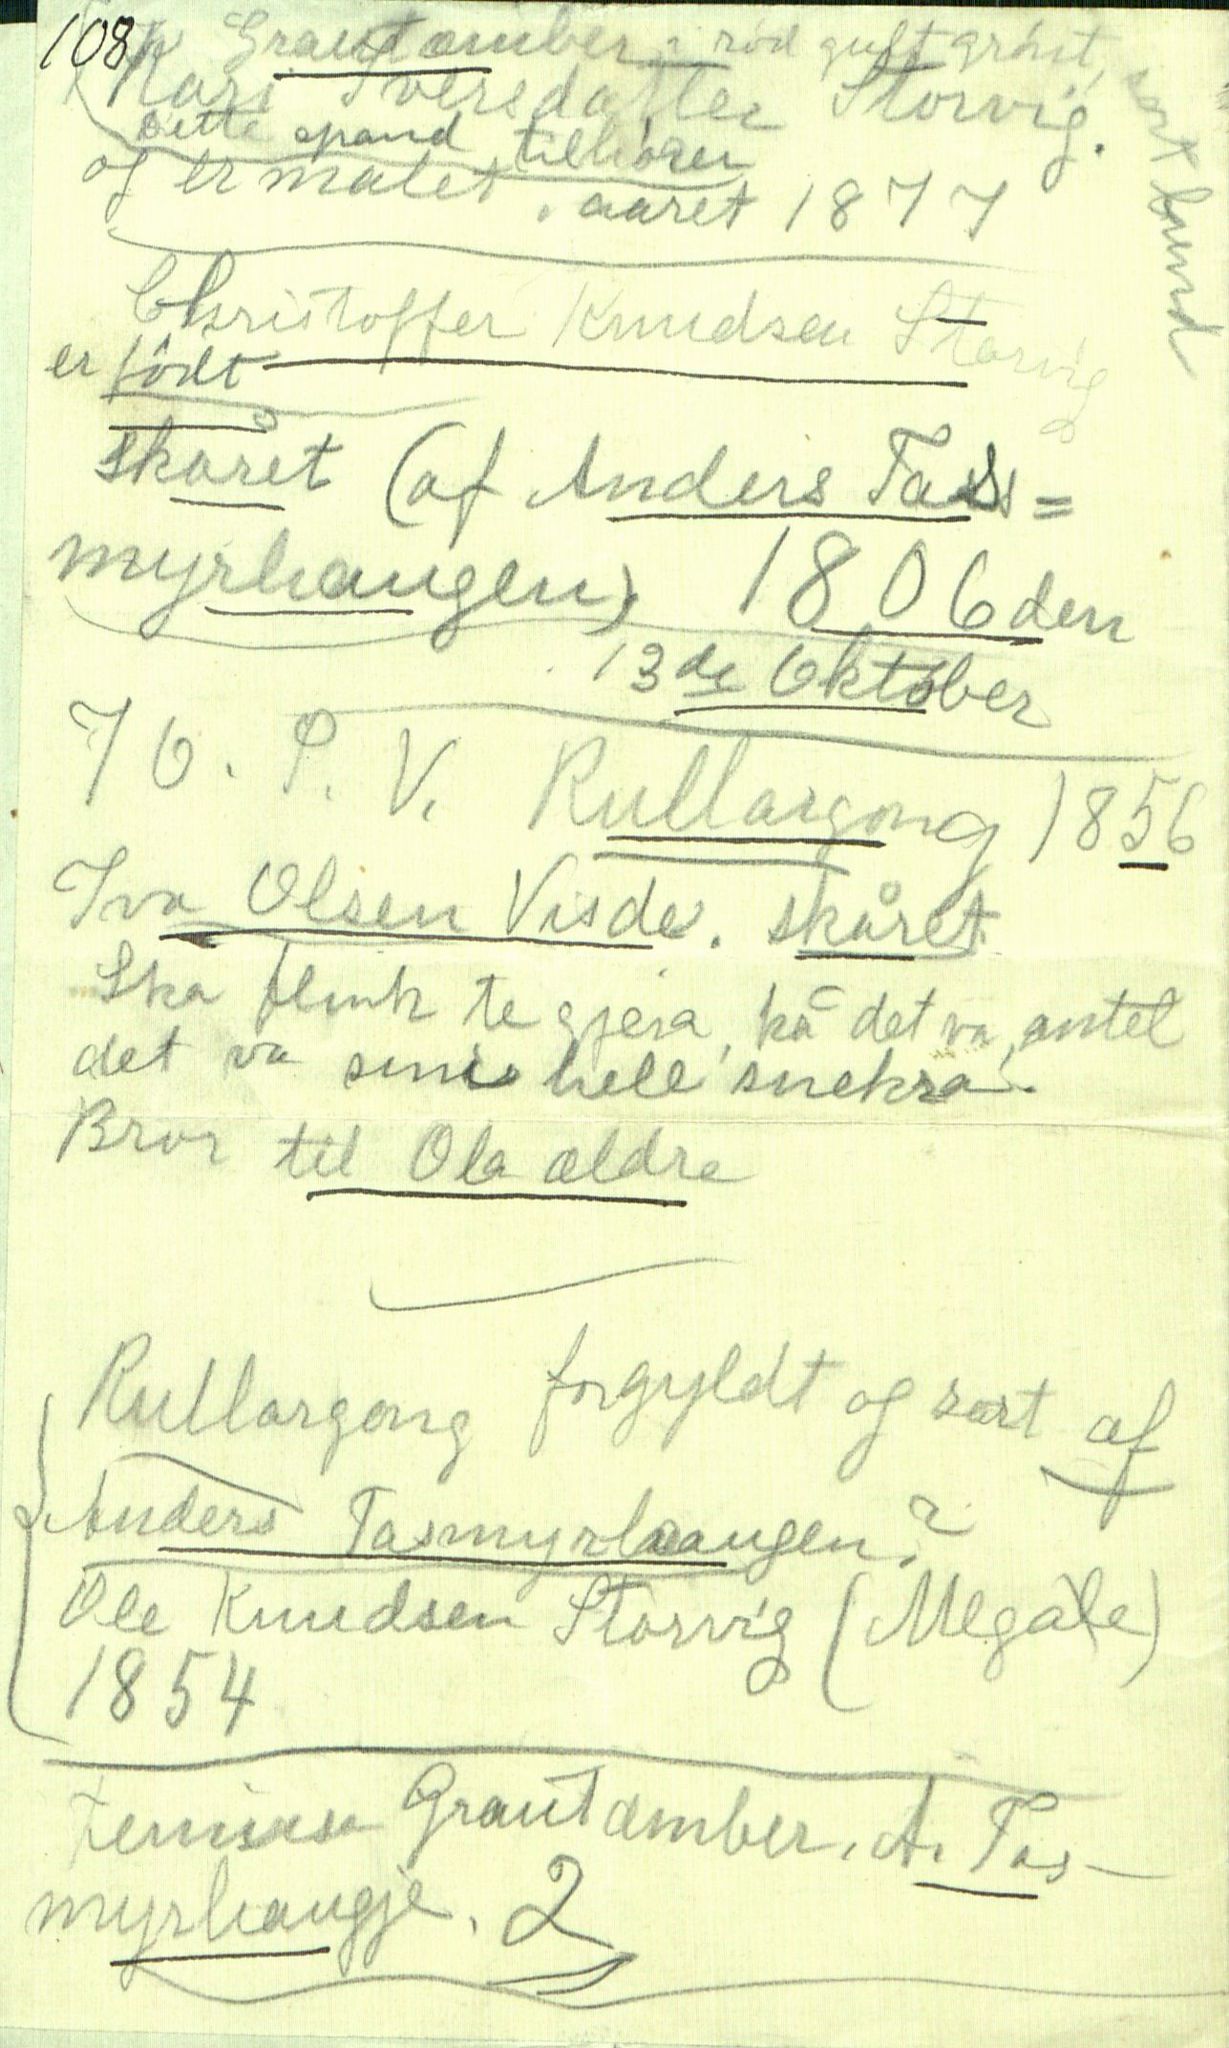 108
Grautamber i rød gult grønt, sort bund
Kari Iversdatter Storvig.
Dette spand tilhører
og er malet i aaret 1877
Christoffer Knudsen Storvig
er født
skåret (af Anders Tass=
myrhaugen) 1806 den
13de Oktober
P. V. Rullargong 1856
Iva Olsen Visde. skåret
Ska flink te gjera, kå det va, antel
det va smis hell snekra.
Bror til Ola ældre
Rullargong forgyldt og sort af
Anders Tasmyrhaugen?
Ole Knudsen Storvig (Megale)
1854
Grautamber. A. Tas-
myrhaugje. 2